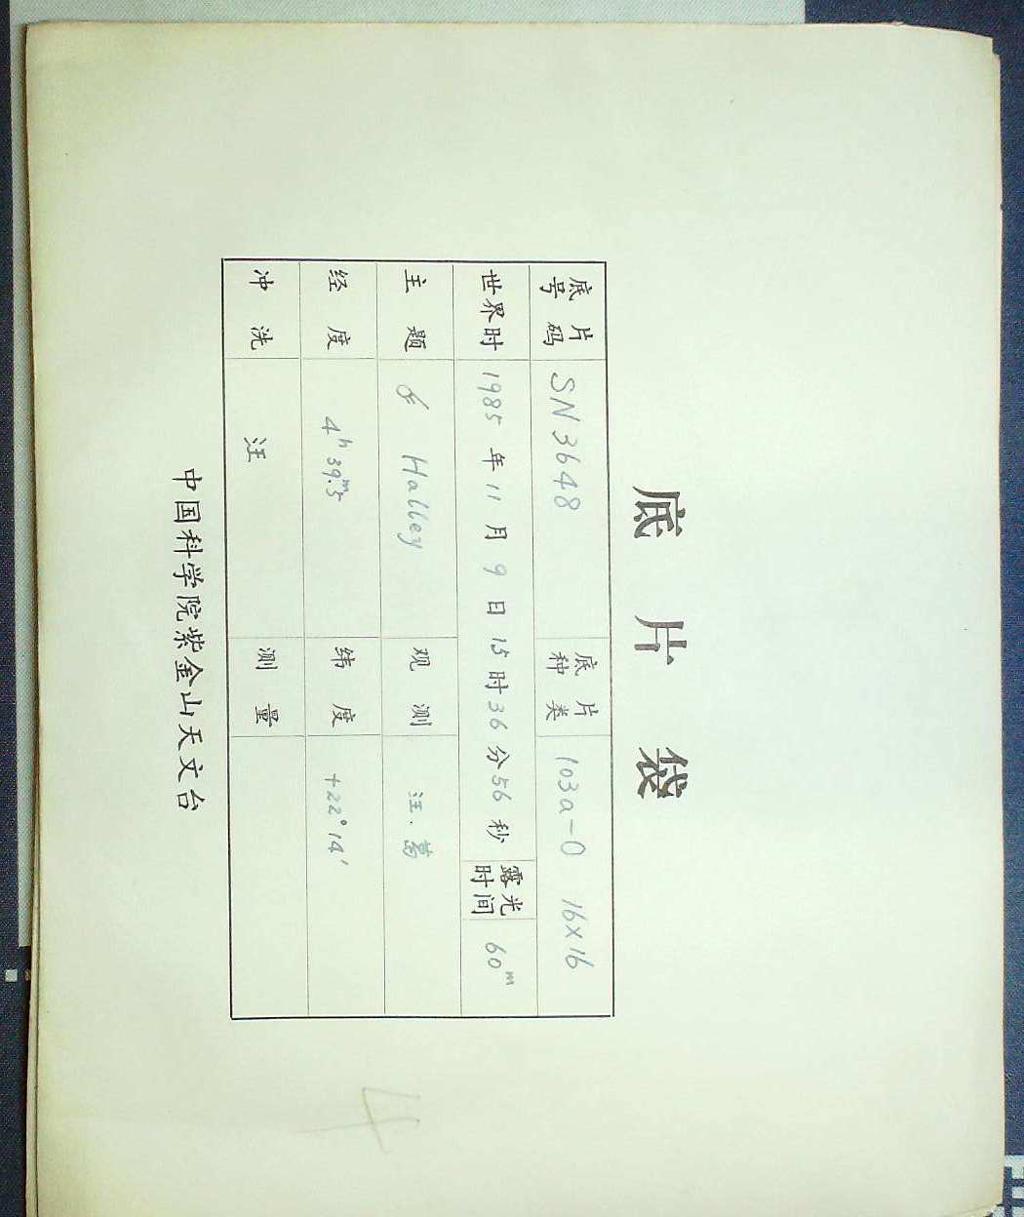 底 片 袋
底片号码 SN3648 底片种类 103a-O 16×16
世界时 1985年11月9日15时36分56秒 露光时间 60ᵐ
主题 Halley 观测 汪.葛
经度 4ʰ39ᵐ.5 纬度 +22°14′
冲洗 汪 测量
中国科学院紫金山天文台
4